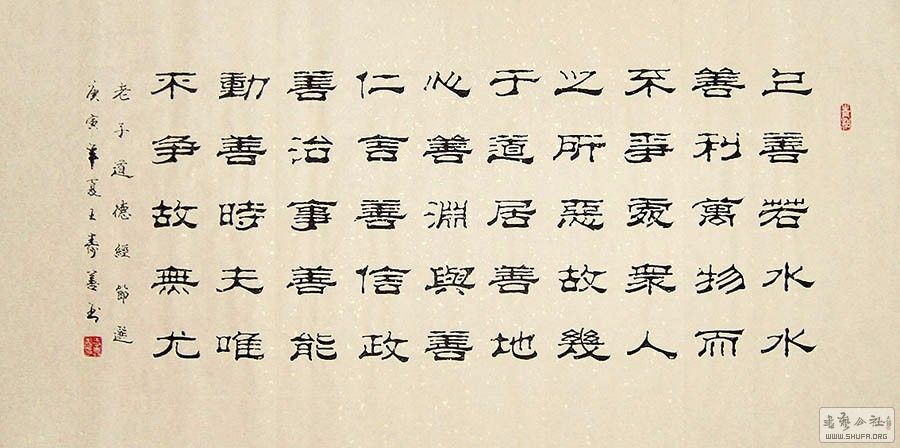 上善若水水
善利萬物而
不爭處衆人
之所惡故幾
于道居善地
心善淵與善
仁言善信政
善治事善能
動善時夫唯
不争故無尤
老子道德經節選
庚寅年夏王壽善书
WWW.SHUFA.ORG